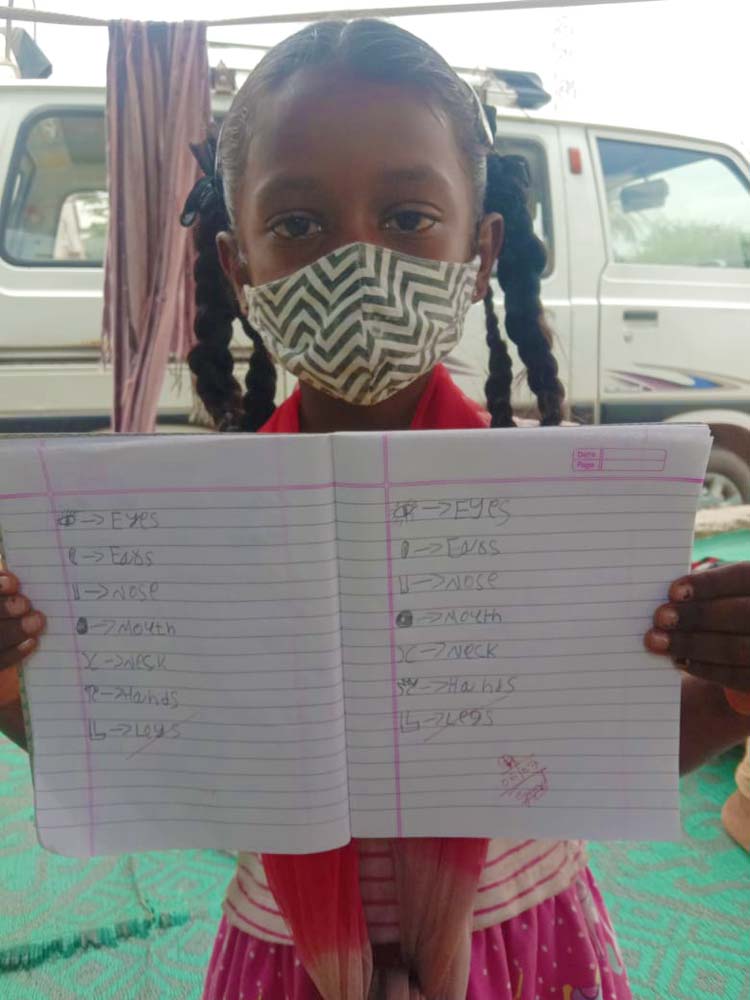 → Eyes
→ Ears
→ Nose
→ Mouth
→ Neck
→ Hands
→ Legs
Date
Page
→ Eyes
→ Ears
→ Nose
→ Mouth
→ Neck
→ Hands
→ Legs